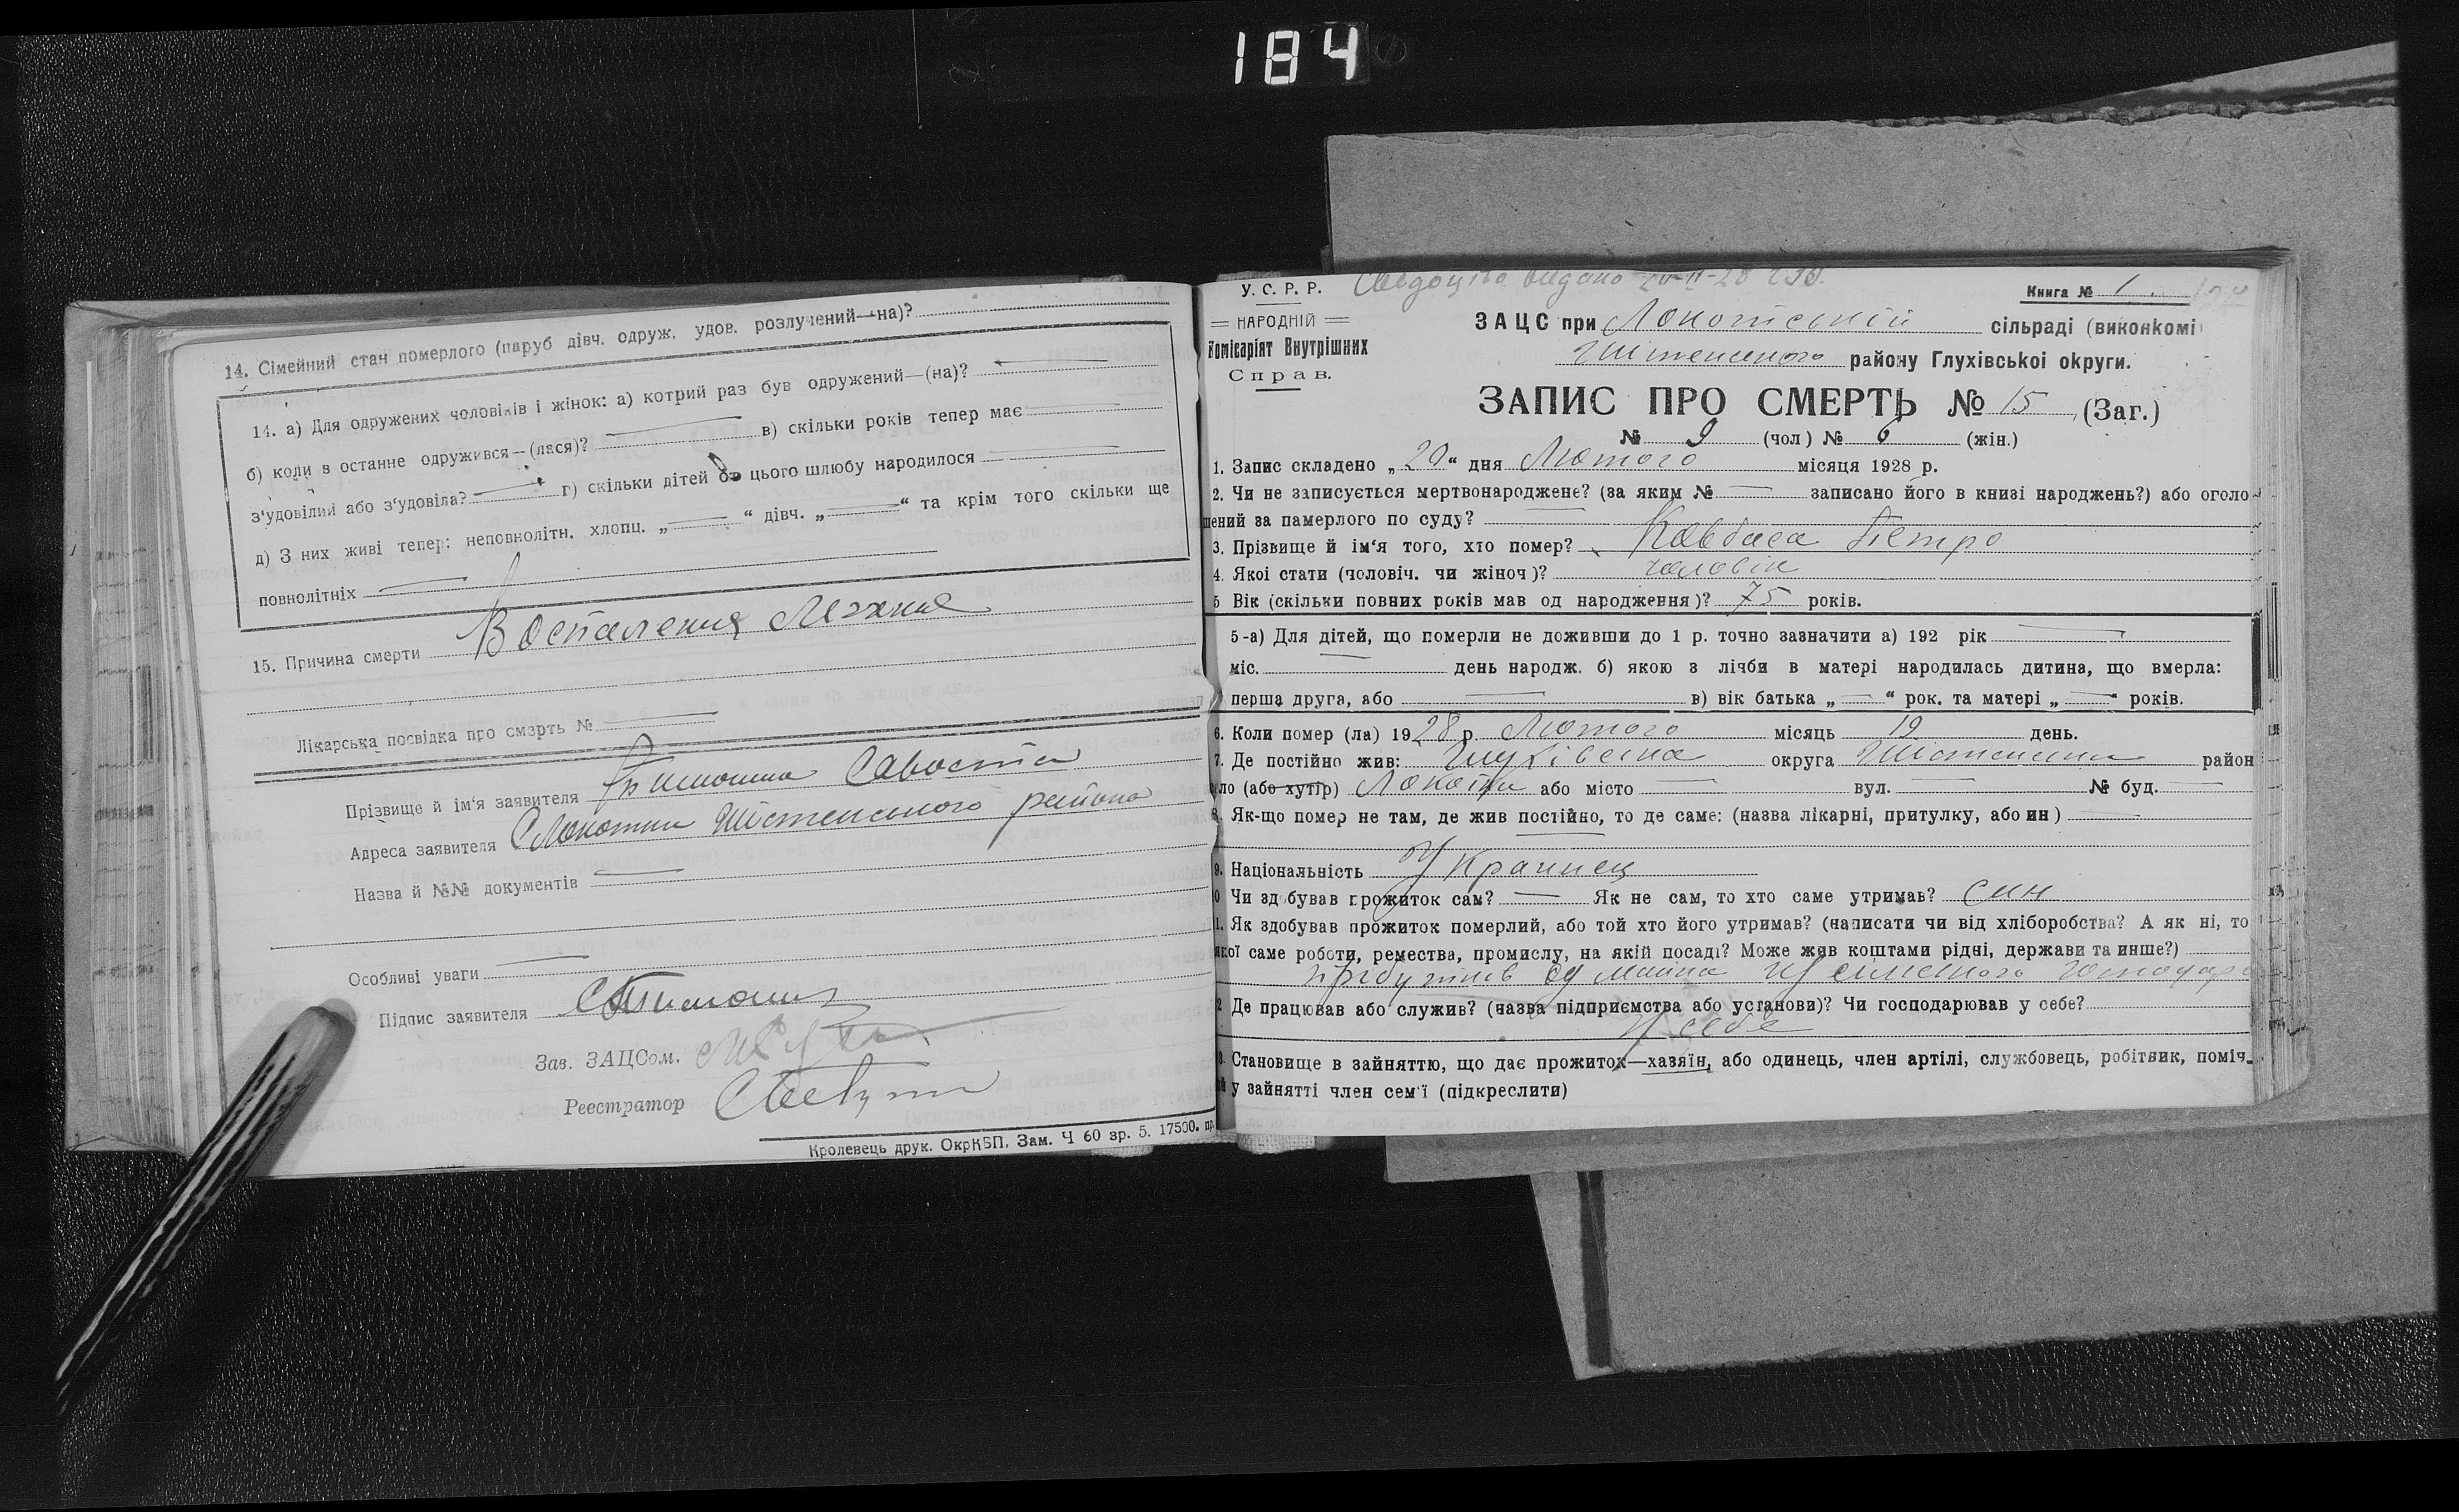 184
14. Сімейний стан померлого (паруб дівч. одруж. удов. розлучений—на)?
14. а) Для одружених чоловіків і жінок: а) котрий раз був одружений—(на)?
б) коли в останне одружився—(лася)? в) скільки років тепер має
з'удовілий або з'удовіла? г) скільки дітей цього шлюбу народилося
д) З них живі тепер: неповнолітн. хлопц. „ — “ дівч. „ — “ та крім того скільки ще
повнолітніх
15. Причина смерти Воспаления Лехких
Лікарська посвідка про смэрть №
Прізвище й ім'я заявителя Савостін
Адреса заявителя С Локотки району
Назва й №№ документів
Особливі уваги
Підпис заявителя
Зав. ЗАЦСом.
Реестратор
Кролевець друк. ОкрКВП. Зам. Ч 60 зр. 5. 17500. пр
Свідоцтво видано
У. С. Р. Р.
Книга № 1
НАРОДНІЙ
Комісаріят Внутрішних
Справ.
ЗАЦС при сільраді (виконкомі
району Глухівської округи.
ЗАПИС ПРО СМЕРТЬ № 15 (Заг.)
№ 9 (чол) № 6 (жін.)
1. Запис складено „20“ дня Лютого місяця 1928 р.
2. Чи не записується мертвонароджене? (за яким № — записано його в книзі народжень?) або оголо-
шений за памерлого по суду?
3. Прізвище й ім'я того, хто помер? Ковбаса Петро
4. Якоі стати (чоловіч. чи жіноч)? чоловік
5 Вік (скільки повних років мав од народження)? 75 років.
5-а) Для дітей, що померли не доживши до 1 р. точно зазначити а) 192 рік
міс. день народж. б) якою з лічби в матері народилась дитина, що вмерла:
перша друга, або в) вік батька „ — “ рок. та матері „ — “ років.
6. Коли помер (ла) 1928 р. Лютого місяць 19 день.
7. Де постійно жив: Глухівська округа район
ло (або хутір) Локотки або місто — вул. — № буд. —
8. Як-що помер не там, де жив постійно, то де саме: (назва лікарні, притулку, або ин)
9. Національність Украинец
0 Чи здобував прожиток сам? — Як не сам, то хто саме утримав? син
1. Як здобував прожиток померлий, або той хто його утримав? (написати чи від хліборобства? А як ні, то
якої саме роботи, ремества, промислу, на якій посаді? Може жив коштами рідні, держави та инше?)
прибутків од майна сільського
2 Де працював або служив? (назва підприємства або установа)? Чи господарював у себе?
У себе
3. Становище в зайняттю, що дає прожиток—хазяїн, або одинець, член артілі, службовець, робітвик, поміч-
й у зайнятті член сем'ї (підкреслити)